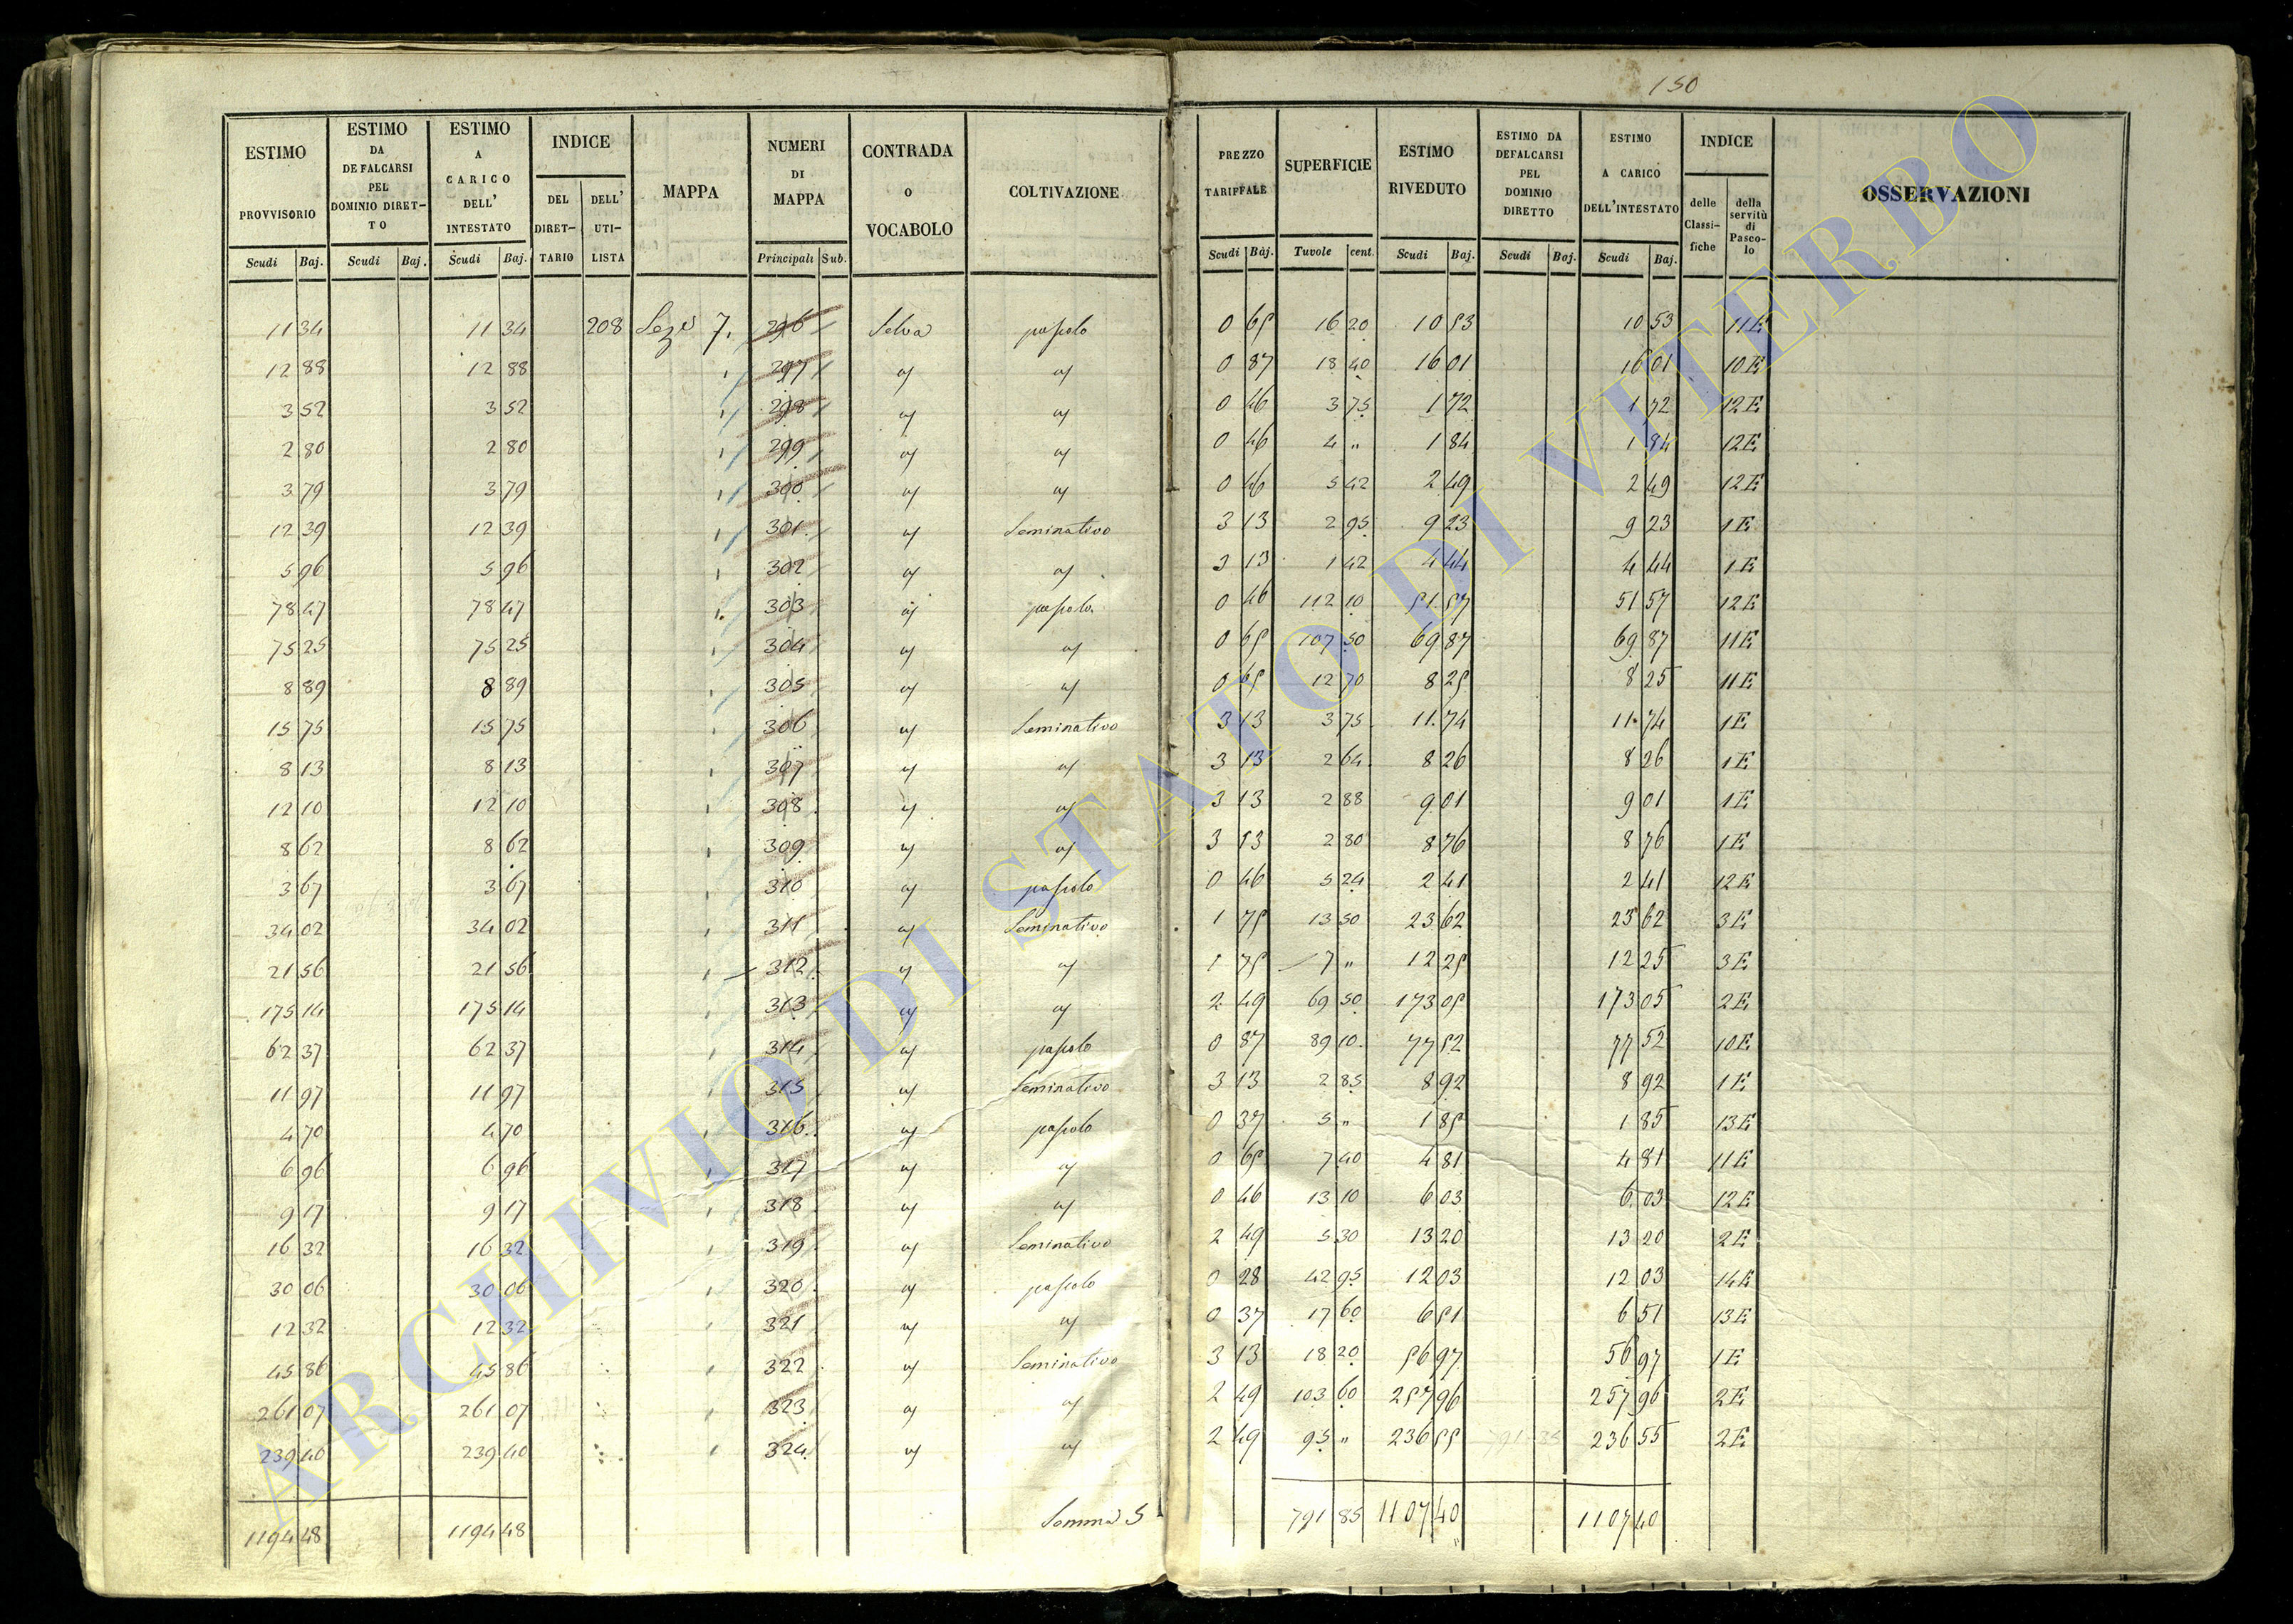 150
ESTIMO PROVVISORIO
ESTIMO DA DEFALCARSI PEL DOMINIO DIRETTO
ESTIMO A CARICO DELL' INTESTATO
INDICE
DEL DIRETTARIO
DELL' UTILISTA
MAPPA
NUMERI DI MAPPA
CONTRADA O VOCABOLO
COLTIVAZIONE
PREZZO TARIFFALE
SUPERFICIE
ESTIMO RIVEDUTO
ESTIMO DA DEFALCARSI PEL DOMINIO DIRETTO
ESTIMO A CARICO DELL'INTESTATO
INDICE
delle Classifiche
della servitù di Pascolo
OSSERVAZIONI
Scudi Baj. Scudi Baj. Scudi Baj. Principali Sub. Scudi Baj. Tavole cent. Scudi Baj. Scudi Baj. Scudi Baj.
11 34 11 34 208 Sez.e 7. 296 Selva pascolo 0 65 16 20 10 53 10 53 11 E
12 88 12 88 " 297 " " 0 87 18 40 16 01 16 01 10 E
3 52 3 52 " 298 " " 0 46 3 75 1 72 1 72 12 E
2 80 2 80 " 299 " " 0 46 4 " 1 84 1 84 12 E
3 79 3 79 " 300 " " 0 46 5 42 2 49 2 49 12 E
12 39 12 39 " 301 " Seminativo 3 13 2 95 9 23 9 23 1 E
5 96 5 96 " 302 " " 3 13 1 42 4 44 4 44 1 E
78 47 78 47 " 303 " pascolo 0 46 112 10 51 57 51 57 12 E
75 25 75 25 " 304 " " 0 65 107 50 69 87 69 87 11 E
8 89 8 89 " 305 " " 0 65 12 70 8 25 8 25 11 E
15 75 15 75 " 306 " Seminativo 3 13 3 75 11 74 11 74 1 E
8 13 8 13 " 307 " " 3 13 2 64 8 26 8 26 1 E
12 10 12 10 " 308 " " 3 13 2 88 9 01 9 01 1 E
8 62 8 62 " 309 " " 3 13 2 80 8 76 8 76 1 E
3 67 3 67 " 310 " pascolo 0 46 5 24 2 41 2 41 12 E
34 02 34 02 " 311 " Seminativo 1 75 13 50 23 62 23 62 3 E
21 56 21 56 " 312 " " 1 75 7 " 12 25 12 25 3 E
175 14 175 14 " 313 " " 2 49 69 50 173 05 173 05 2 E
62 37 62 37 " 314 " pascolo 0 87 89 10 77 52 77 52 10 E
11 97 11 97 " 315 " Seminativo 3 13 2 85 8 92 8 92 1 E
4 70 4 70 " 316 " pascolo 0 37 5 " 1 85 1 85 13 E
6 96 6 96 " 317 " " 0 65 7 40 4 81 4 81 11 E
9 17 9 17 " 318 " " 0 46 13 10 6 03 6 03 12 E
16 32 16 32 " 319 " Seminativo 2 49 5 30 13 20 13 20 2 E
30 06 30 06 " 320 " pascolo 0 28 42 95 12 03 12 03 14 E
12 32 12 32 " 321 " " 0 37 17 60 6 51 6 51 13 E
45 86 45 86 " 322 " Seminativo 3 13 18 20 56 97 56 97 1 E
261 07 261 07 " 323 " " 2 49 103 60 257 96 257 96 2 E
239 40 239 40 " 324 " " 2 49 95 " 236 55 236 55 2 E
1194 48 1194 48 Somma S 791 85 1107 40 1107 40
ARCHIVIO DI STATO DI VITERBO